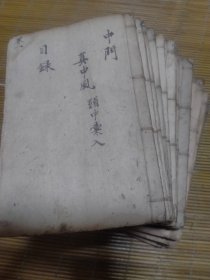 中門
真中風 類中彙入
目錄